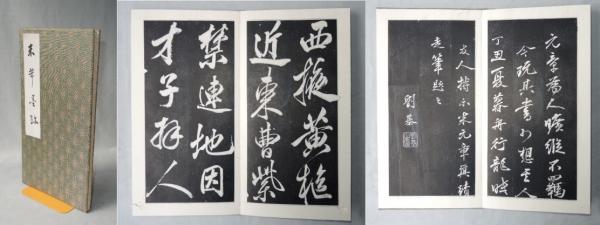 米芾墨跡
西掖黃樞
近東曹紫
禁連地因
才子拜人
元章為人曠縱不羈
今玩其書可想其人
丁丑夏暮舟行龍城
友人持示宋元章真蹟
走筆題之
劉基